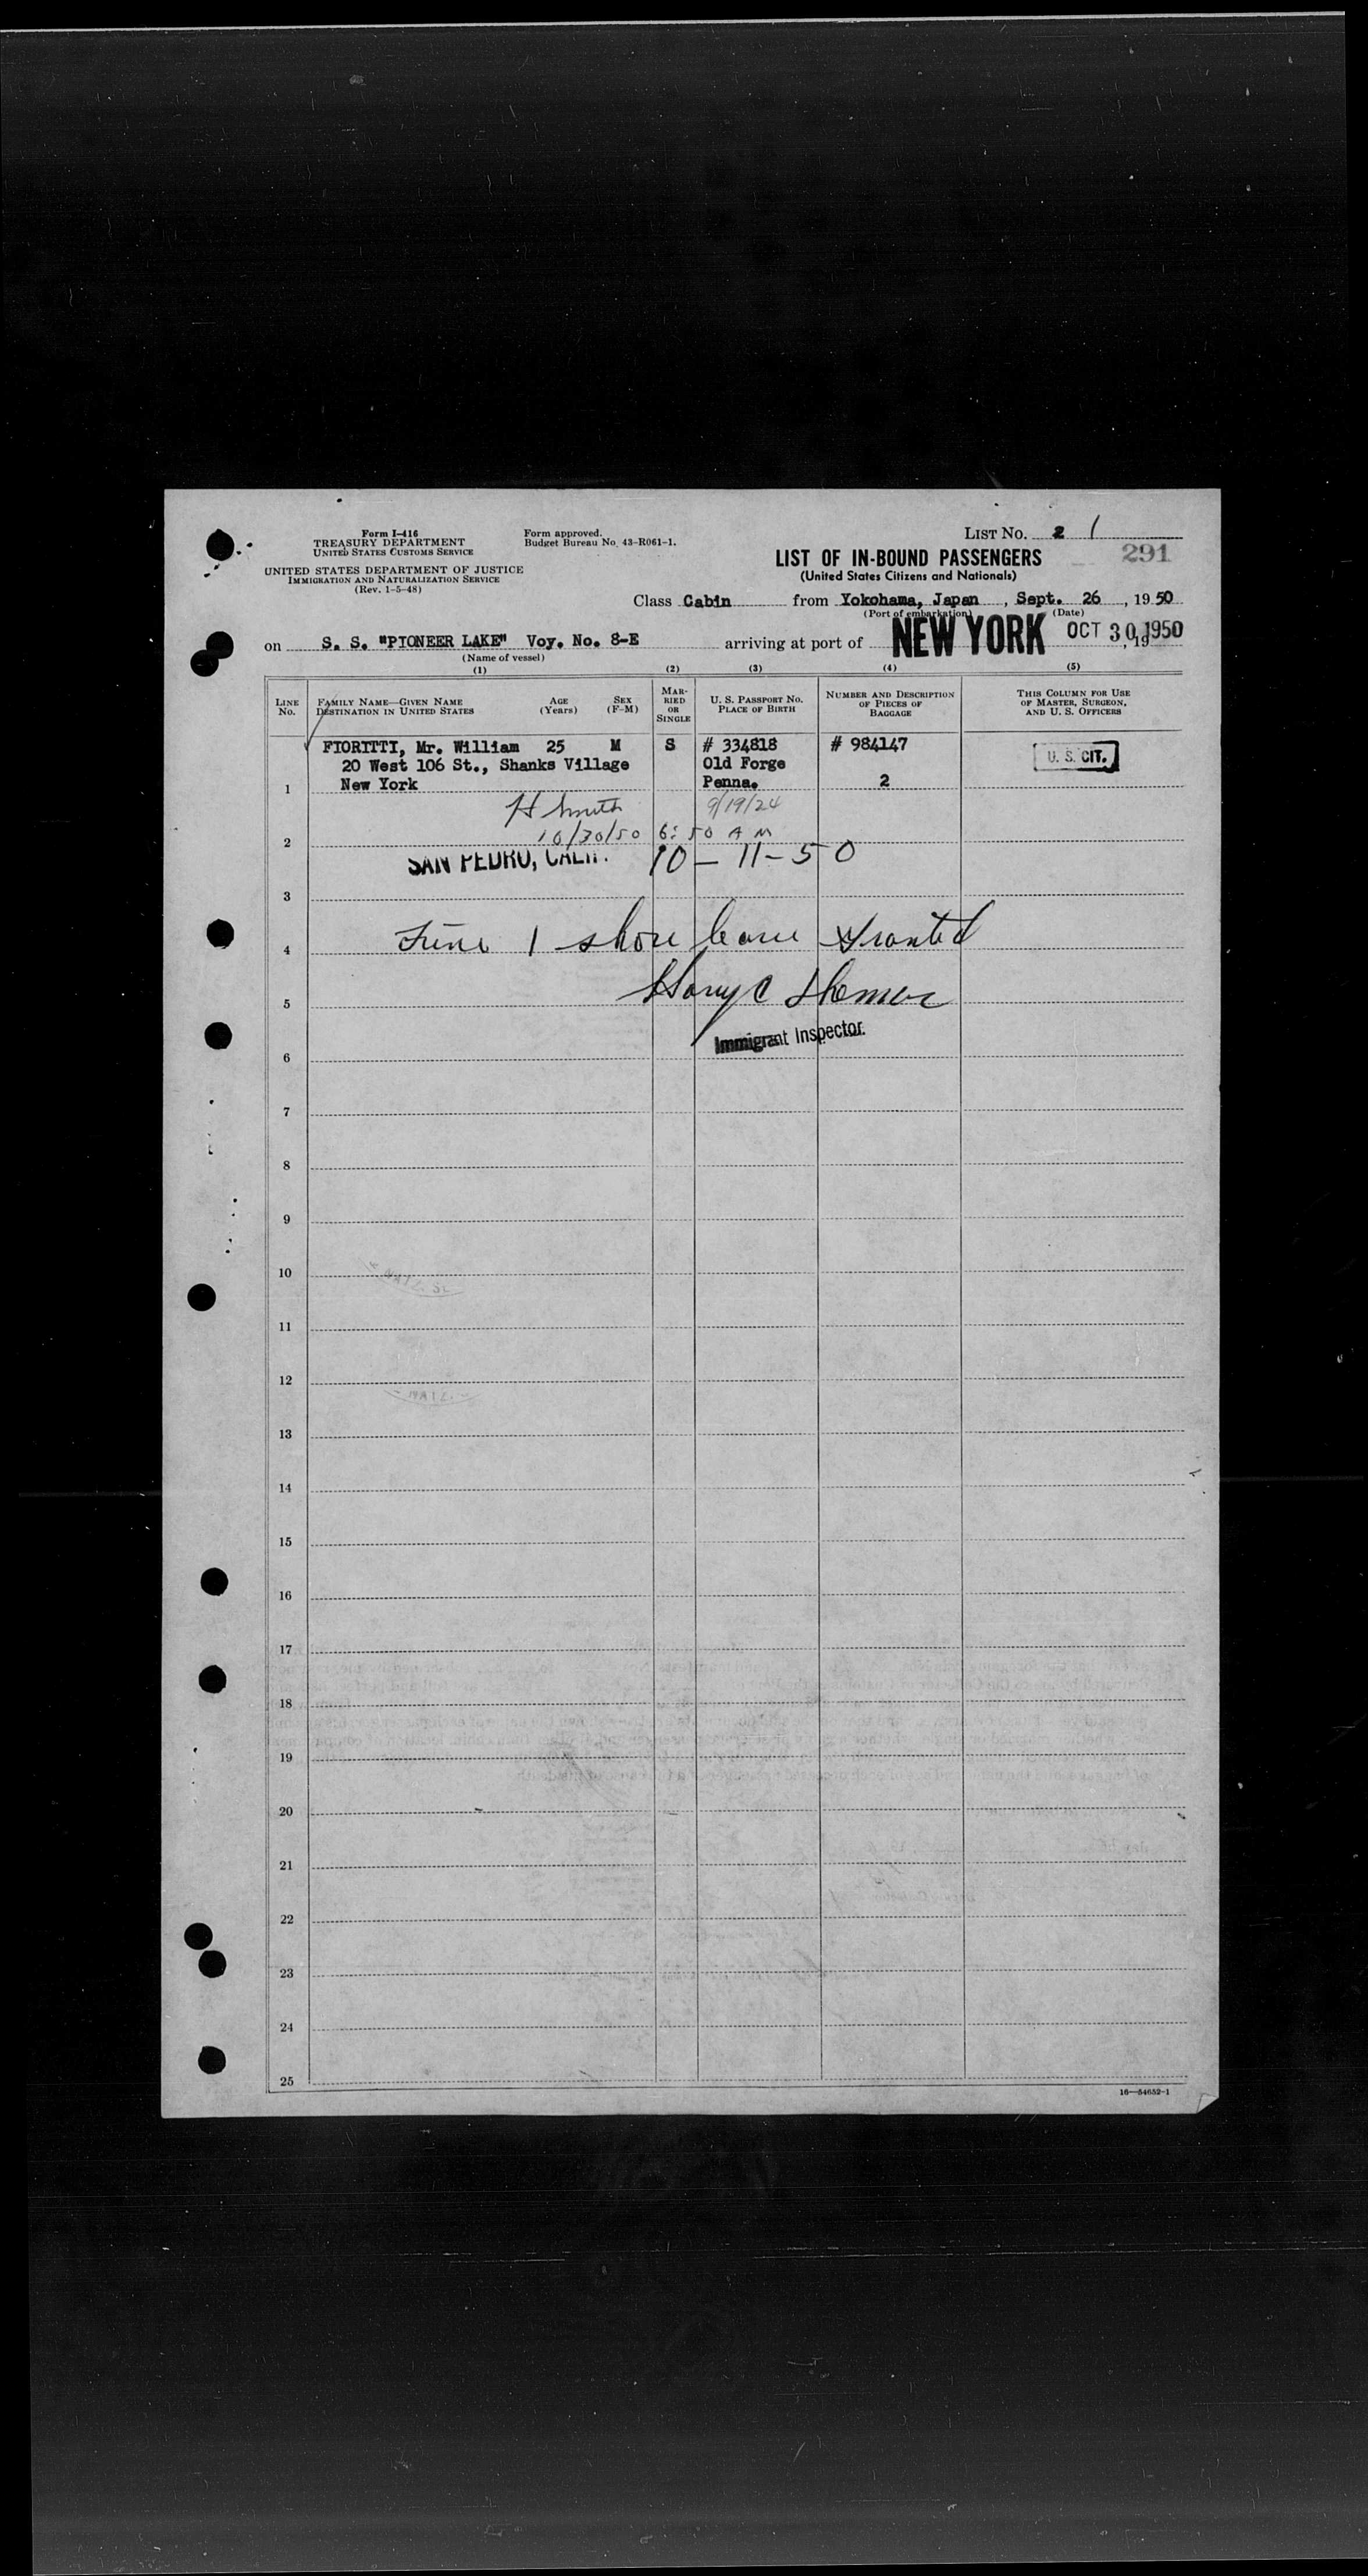 Form I-416
TREASURY DEPARTMENT
UNITED STATES CUSTOMS SERVICE
UNITED STATES DEPARTMENT OF JUSTICE
IMMIGRATION AND NATURALIZATION SERVICE
(Rev. 1-5-48)
Form approved.
Budget Bureau No. 43-R061-1.
LIST NO. 2 1
291
LIST OF IN-BOUND PASSENGERS
(United States Citizens and Nationals)
Class Cabin from Yokohama, Japan, Sept. 26, 1950
(Port of embarkation) (Date)
on S. S. "PIONEER LAKE" Voy. No. 8-E arriving at port of NEW YORK OCT 30 1950, 19
(Name of vessel)
(1) (2) (3) (4) (5)
LINE NO.
FAMILY NAME—GIVEN NAME
DESTINATION IN UNITED STATES
AGE (Years)
SEX (F-M)
MARRIED OR SINGLE
U. S. PASSPORT NO.
PLACE OF BIRTH
NUMBER AND DESCRIPTION OF PIECES OF BAGGAGE
THIS COLUMN FOR USE OF MASTER, SURGEON, AND U. S. OFFICERS
FIORITTI, Mr. William 25 M S # 334818 # 984147 U. S. CIT.
20 West 106 St., Shanks Village Old Forge
1 New York Penna. 2
H Smith 9/19/24
2 10/30/50 6:50 AM
SAN PEDRO, CALIF. 10-11-50
3
4 Line 1 shore leave Granted
5 Harry C
Immigrant Inspector.
6
7
8
9
10
11
12
13
14
15
16
17
18
19
20
21
22
23
24
25
16—54652-1